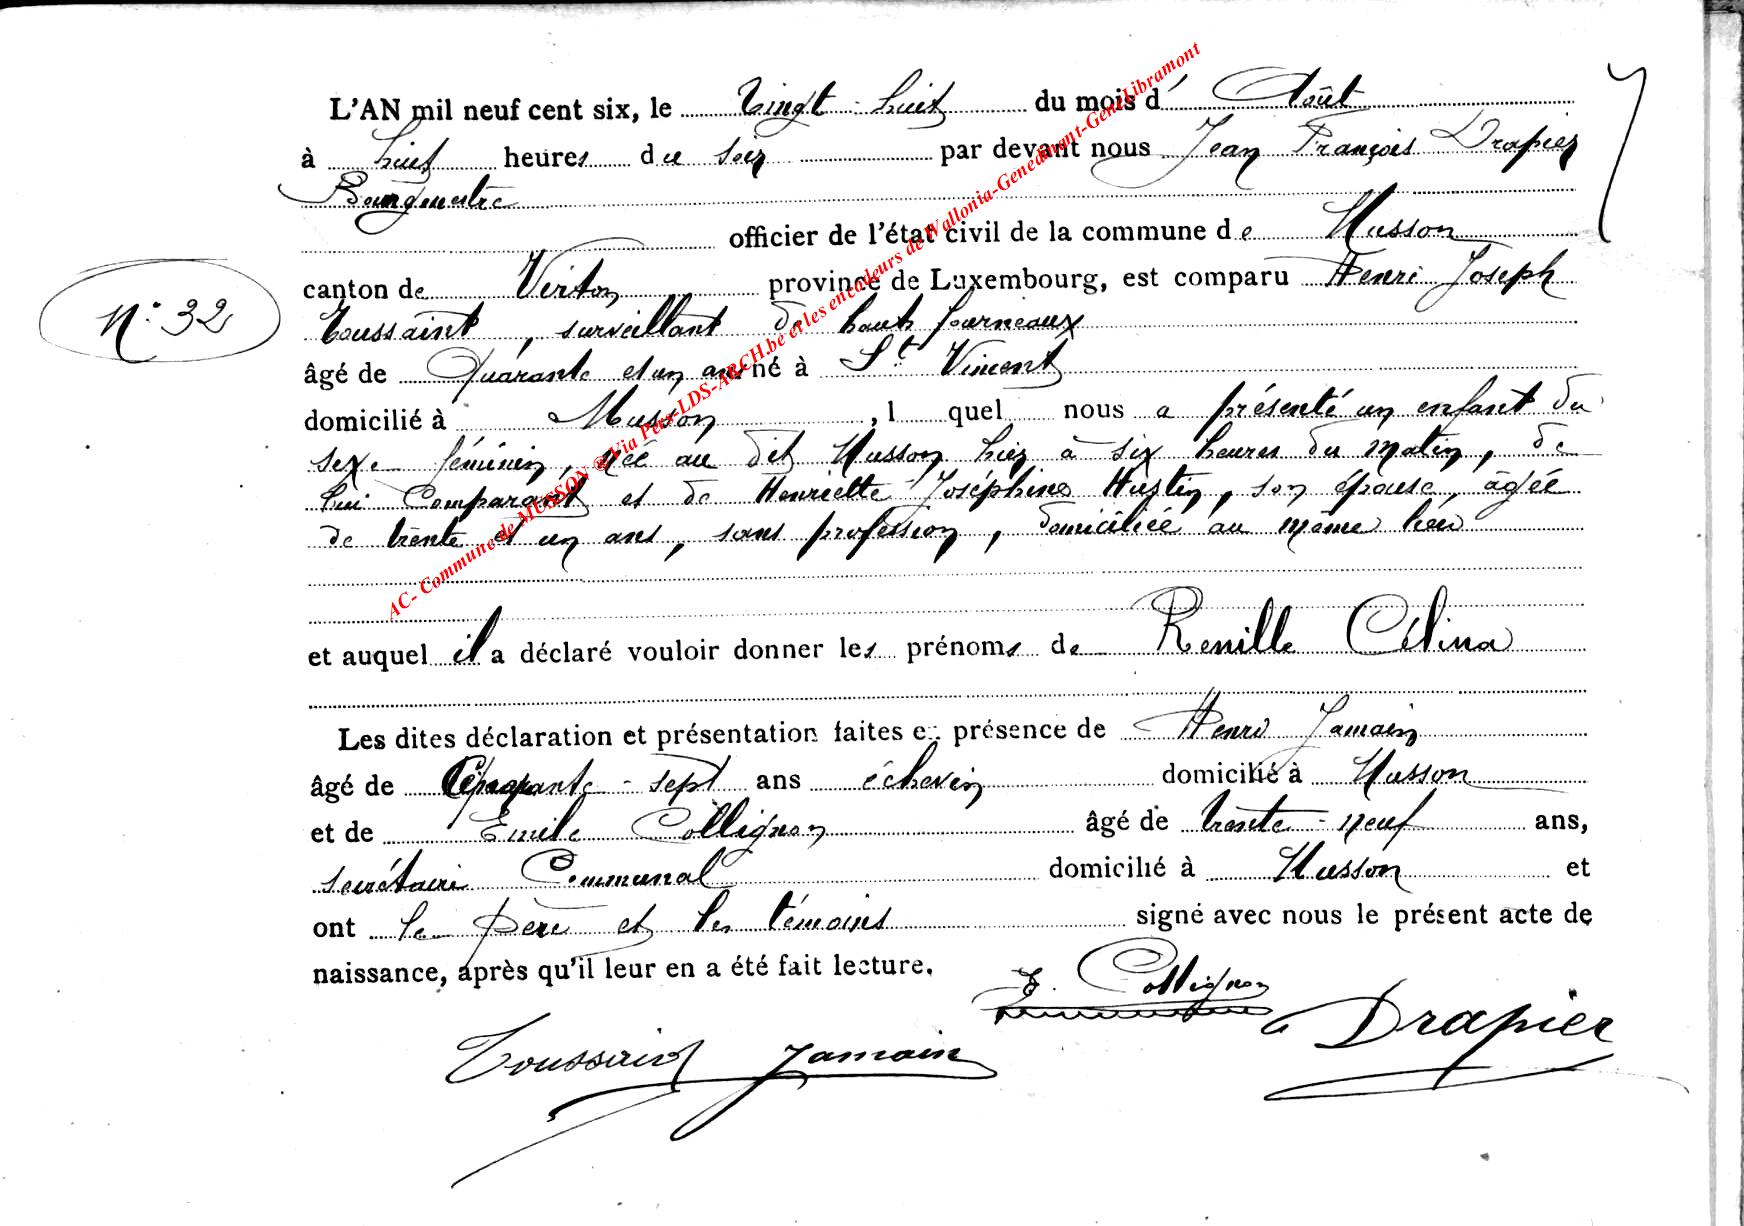 L'AN mil neuf cent six, le Vingt-huit du mois d' Août
à huit heures du soir par devant nous Jean François Drapier
Bourgmestre
officier de l'état civil de la commune de Musson
N° 32
canton de Virton province de Luxembourg, est comparu Henri Joseph
Toussaint, surveillant de hauts fourneaux
âgé de Quarante et un ans né à St Vincent
domicilié à Musson, l quel nous a présenté un enfant du
sexe féminin, née au dit Musson hier à six heures du matin, de
lui Comparant et de Henriette Joséphine Hustin, son épouse, âgée
de trente et un ans, sans profession, domiciliée au même lieu
et auquel il a déclaré vouloir donner les prénoms de Renille Célina
Les dites déclaration et présentation faites en présence de Henri Jamain
âgé de Cinquante-sept ans échevin domicilié à Musson
et de Emile Collignon âgé de trente-neuf ans,
secrétaire Communal domicilié à Musson et
ont le père et les témoins signé avec nous le présent acte de
naissance, après qu'il leur en a été fait lecture.
E. Collignon
Drapier
Toussaint Jamain
AC- Commune de MUSSON ®Via Pérx-LDS-ARCH.be et les encodeurs de Wallonia-Genedinant-GeneLibramont